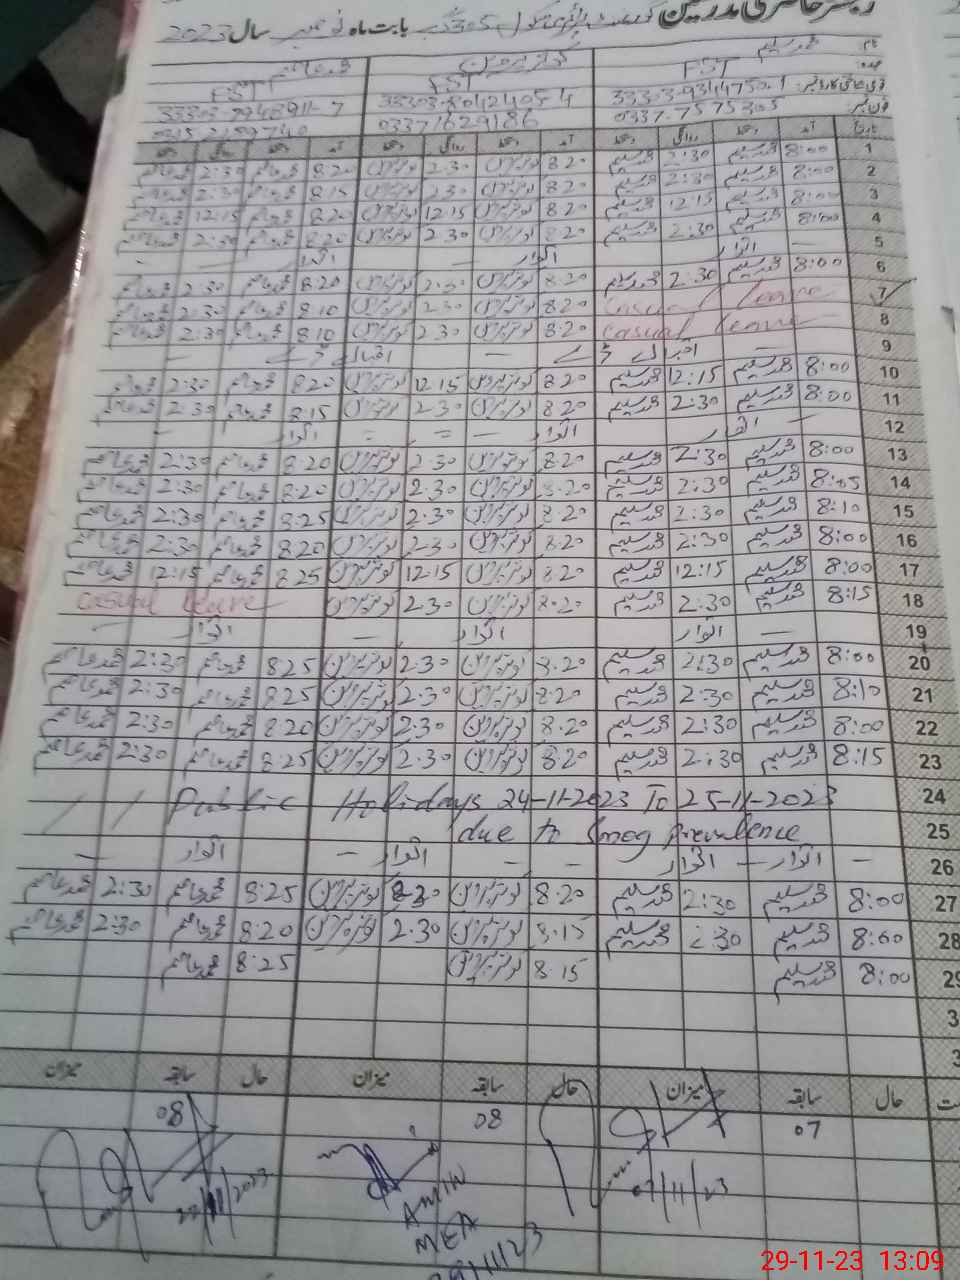 رجسٹر حاضری مدرسین گورنمنٹ پرائمری سکول 305 گ ب بابت ماہ نومبر سال 2023
نام محمد سلیم کوثر پروین محمد عاصم
عہدہ PST PST PST
33303-8042405-4
فون نمبر 0337-7575305 03371629186
تاریخ آمد دستخط روانگی دستخط آمد دستخط روانگی دستخط آمد دستخط روانگی دستخط
1 8:00 محمد سلیم 2:30 محمد سلیم 8.20 کوثر پروین 2.30 کوثر پروین 8.20 محمد عاصم 2:30 محمد عاصم
2 8:00 محمد سلیم 2:30 محمد سلیم 8.20 کوثر پروین 2.30 کوثر پروین 8.15 محمد عاصم 2:30 محمد عاصم
3 8:00 محمد سلیم 12:15 محمد سلیم 8.20 کوثر پروین 12.15 کوثر پروین 8.20 محمد عاصم 12:15 محمد عاصم
4 8:00 محمد سلیم 2:30 محمد سلیم 8.20 کوثر پروین 2.30 کوثر پروین 8.20 محمد عاصم 2:30 محمد عاصم
5 — اتوار — اتوار — اتوار —
6 8:00 محمد سلیم 2:30 محمد سلیم 8.20 کوثر پروین 2.30 کوثر پروین 8.20 محمد عاصم 2:30 محمد عاصم
7 Casual leave 8.20 کوثر پروین 2.30 کوثر پروین 8.10 محمد عاصم 2:30 محمد عاصم
8 Casual leave 8.20 کوثر پروین 2.30 کوثر پروین 8.10 محمد عاصم 2:30 محمد عاصم
9 — اقبال ڈے — اقبال ڈے —
10 8:00 محمد سلیم 12:15 محمد سلیم 8.20 کوثر پروین 12.15 کوثر پروین 8.20 محمد عاصم 2:30 محمد عاصم
11 8:00 محمد سلیم 2:30 محمد سلیم 8.20 کوثر پروین 2.30 کوثر پروین 8.15 محمد عاصم 2:30 محمد عاصم
12 اتوار اتوار — = = اتوار —
13 8:00 محمد سلیم 2:30 محمد سلیم 8.20 کوثر پروین 2.30 کوثر پروین 8.20 محمد عاصم 2:30 محمد عاصم
14 8:05 محمد سلیم 2:30 محمد سلیم 8.20 کوثر پروین 2.30 کوثر پروین 8.20 محمد عاصم 2:30 محمد عاصم
15 8:10 محمد سلیم 2:30 محمد سلیم 8.20 کوثر پروین 2.30 کوثر پروین 8:25 محمد عاصم 2:30 محمد عاصم
16 8:00 محمد سلیم 2:30 محمد سلیم 8.20 کوثر پروین 2.30 کوثر پروین 8.20 محمد عاصم 2:30 محمد عاصم
17 8:00 محمد سلیم 12:15 محمد سلیم 8.20 کوثر پروین 12.15 کوثر پروین 8.25 محمد عاصم 12:15 محمد عاصم
18 8:15 محمد سلیم 2:30 محمد سلیم 8.20 کوثر پروین 2.30 کوثر پروین Casual leave
19 — اتوار اتوار — اتوار —
20 8:00 محمد سلیم 2:30 محمد سلیم 8.20 کوثر پروین 2.30 کوثر پروین 8.25 محمد عاصم 2:30 محمد عاصم
21 8:10 محمد سلیم 2:30 محمد سلیم 8.20 کوثر پروین 2.30 کوثر پروین 8.25 محمد عاصم 2:30 محمد عاصم
22 8:00 محمد سلیم 2:30 محمد سلیم 8.20 کوثر پروین 2.30 کوثر پروین 8.20 محمد عاصم 2:30 محمد عاصم
23 8:15 محمد سلیم 2:30 محمد سلیم 8.20 کوثر پروین 2.30 کوثر پروین 8.25 محمد عاصم 2:30 محمد عاصم
24 Public Holidays 24-11-2023 To 25-11-2023
25 due to Smog Prevalence
26 — اتوار — اتوار - - اتوار — اتوار —
27 8:00 محمد سلیم 2:30 محمد سلیم 8.20 کوثر پروین کوثر پروین 8:25 محمد عاصم 2:30 محمد عاصم
28 8:00 محمد سلیم 2:30 محمد سلیم 8.15 کوثر پروین 2.30 کوثر پروین 8:20 محمد عاصم 2:30 محمد عاصم
29 8:00 محمد سلیم 8.15 کوثر پروین 8:25 محمد عاصم
حال سابقہ میزان حال سابقہ میزان حال سابقہ میزان
07 08 08
07/11/23
AMIN
MEA
29-11-23 13:09